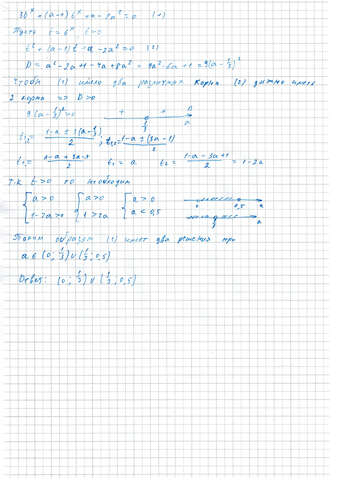 36ˣ + (a-1) 6ˣ + a - 2a² = 0 (1)
Пусть t = 6ˣ, t>0
t² + (a-1) t + a - 2a² = 0 (2)
D = a² - 2a + 1 - 4a + 8a² = 9a² - 6a + 1 = 9(a - 1/3)²
Чтобы (1) имело два различных корня (2) должно иметь
2 корня => D>0
9(a - 1/3)² > 0
+ + D
1/3 a
t₁,₂ = (1-a ± 3(a - 1/3))/2 ; t₁,₂ = (1-a ± (3a-1))/2
t₁ = (1-a+3a-1)/2 t₁ = a t₂ = (1-a-3a+1)/2 = 1-2a
Т.к. t>0 то необходимо
{a>0 {a>0 {a>0
0 0,5 a
{1-2a>0 {1>2a {a<0,5
1/3 a
Таким образом (1) имеет два решения при
a ∈ (0; 1/3) ∪ (1/3; 0,5)
Ответ: (0; 1/3) ∪ (1/3; 0,5)